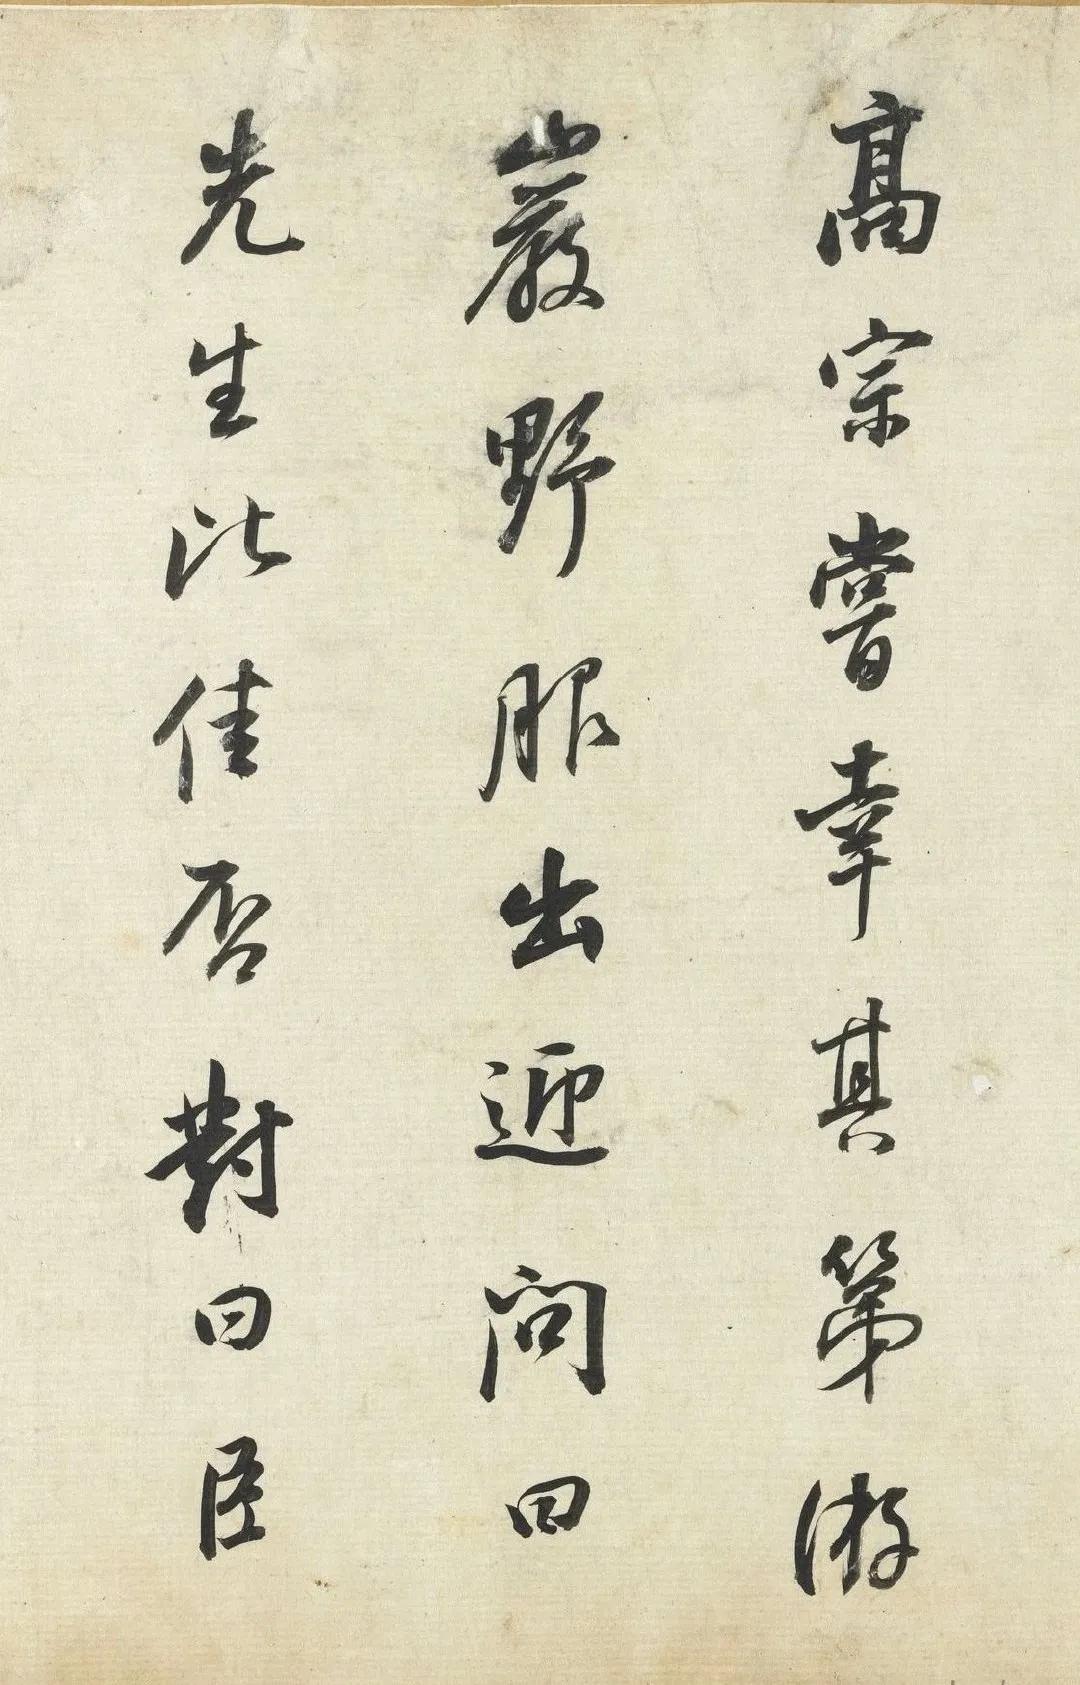 高宗嘗幸其第游
巖野服出迎問曰
先生比佳否對曰臣